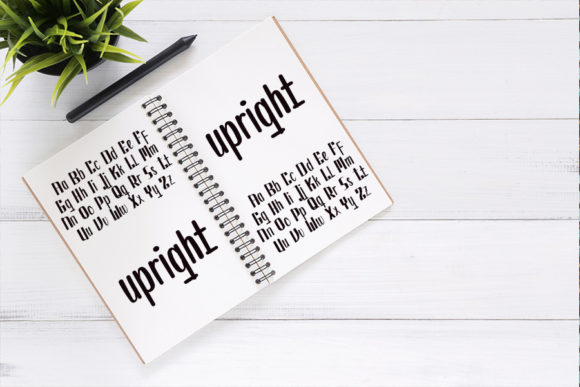 Aa Bb Cc Dd Ee Ff
Gg Hh Ii Jj Kk Ll Mm
Nn Oo Pp Qq Rr Ss Tt
Uu Vv Ww Xx Yy Zz
upright
upright
Aa Bb Cc Dd Ee Ff
Gg Hh Ii Jj Kk Ll Mm
Nn Oo Pp Qq Rr Ss Tt
Uu Vv Ww Xx Yy Zz